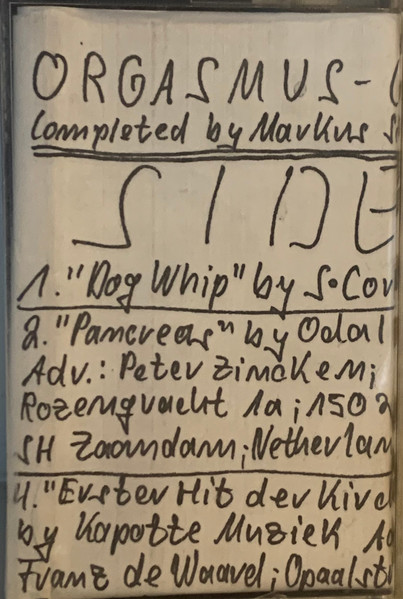 ORGASMUS-
Completed by Markus S
SIDE
1. "Dog Whip" by S·Cor
2. "Pancreas" by Odal
Adv.: Peter Zinckem;
Rozengracht 1a; 1502
SH Zaandam; Netherlan
4. "Erster Hit der Kirc
by Kapotte Muziek A
Franz de Waavd; Opaalst